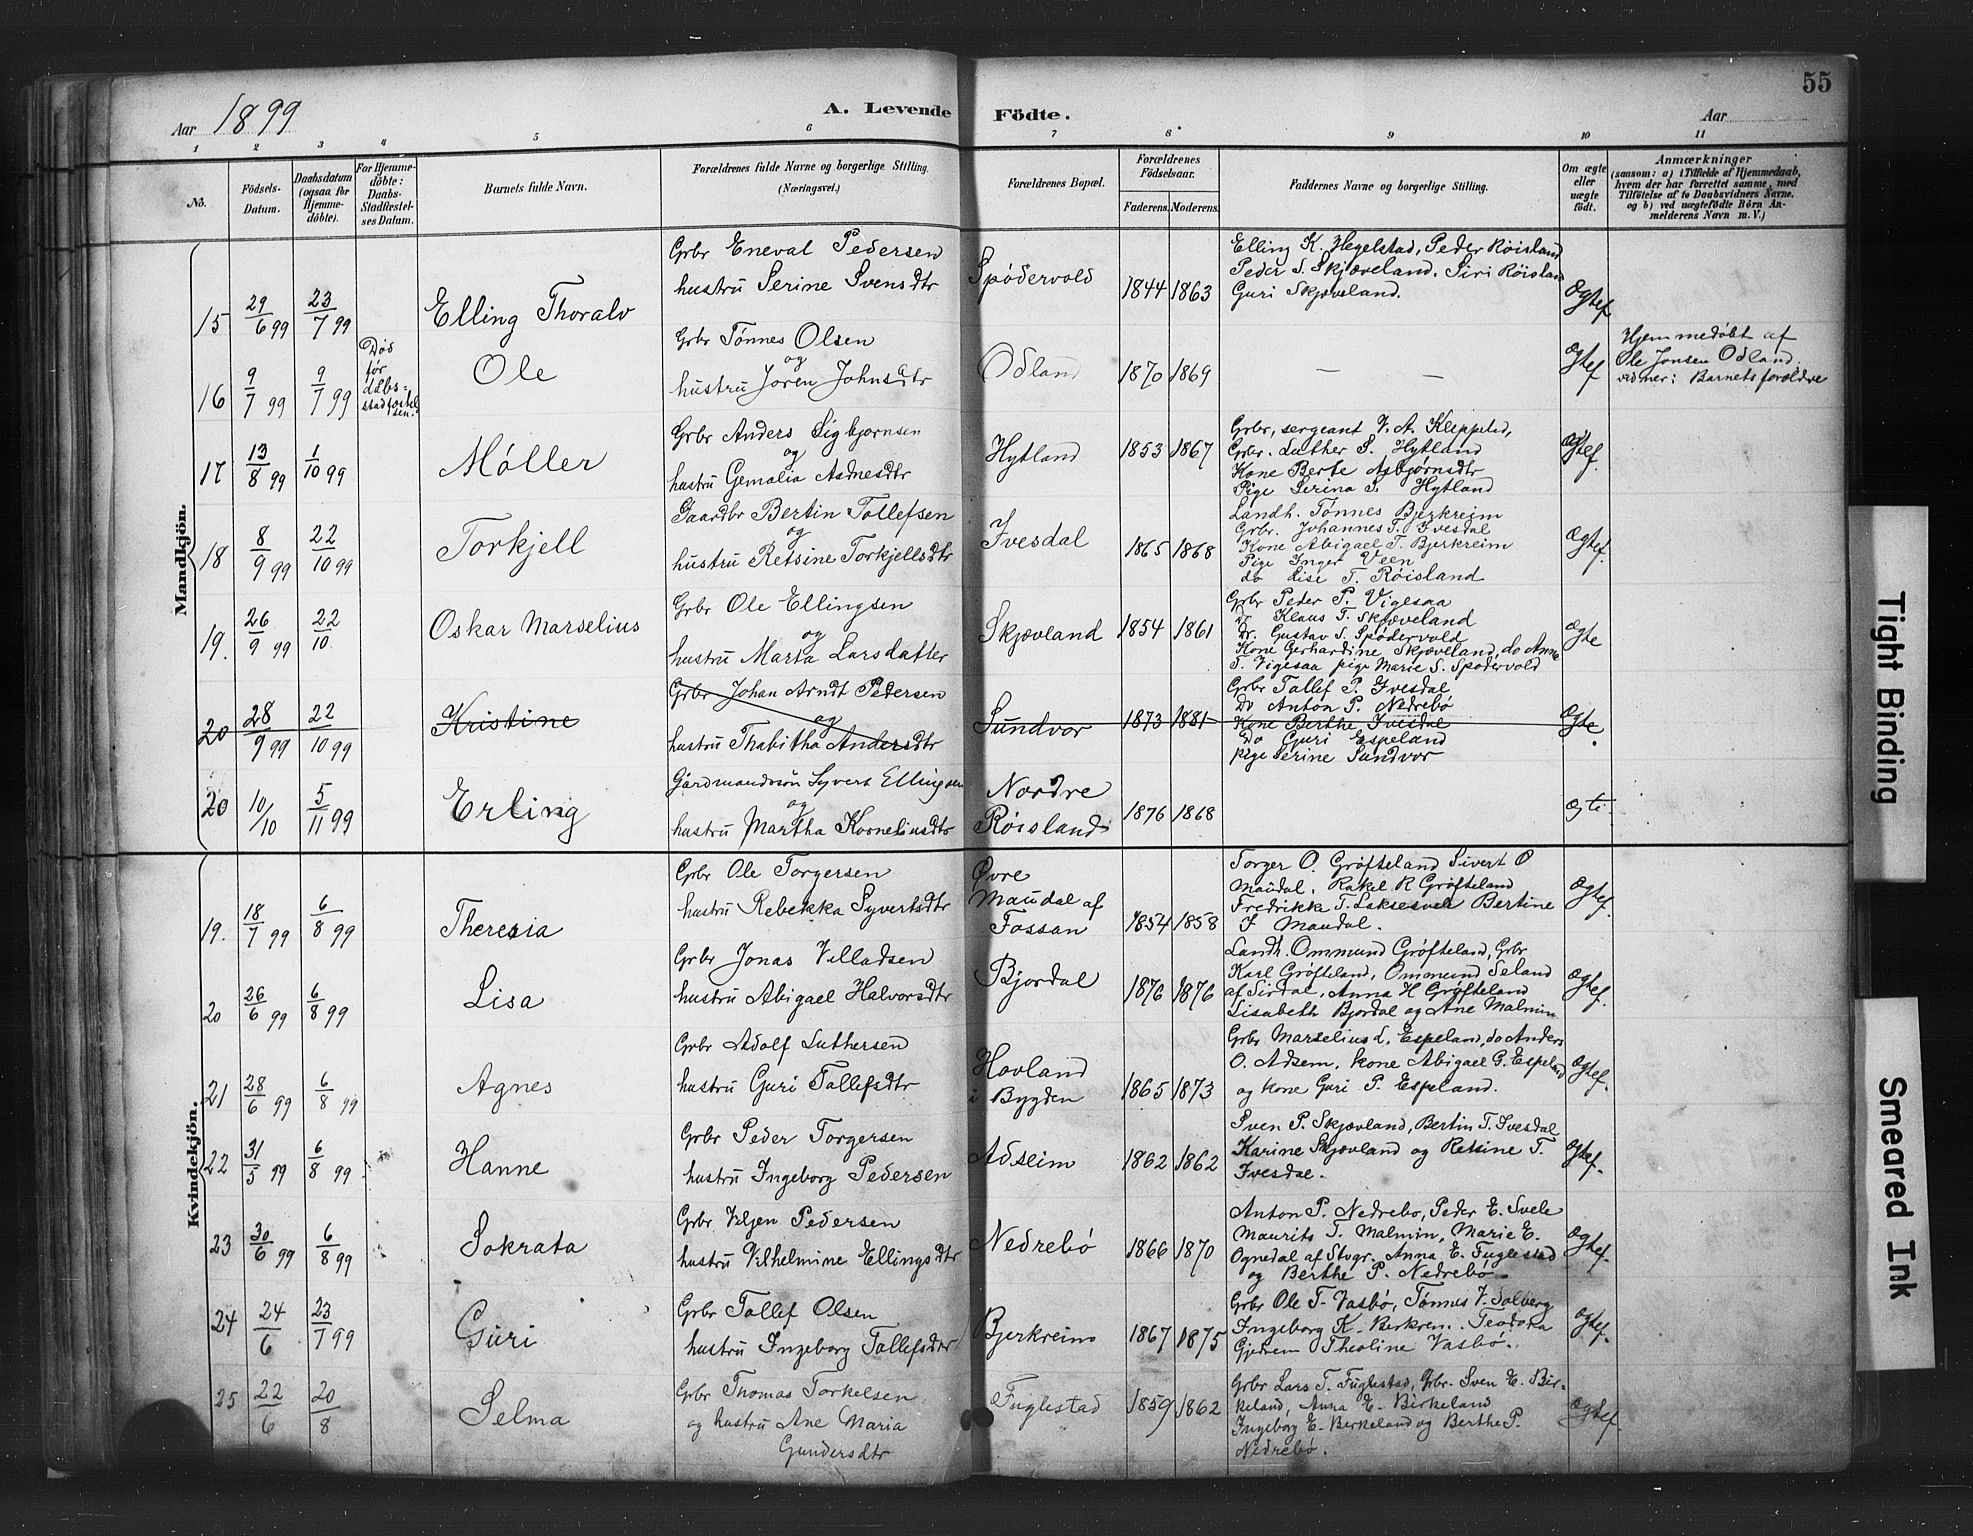 55
Aar 1899
A. Levende Födte.
Aar
1 2 3 4 5 6 7 8 9 10 11
No.
Födsels-Datum.
Daabsdatum (ogsaa for Hjemme-döbte).
For Hjemme-döbte: Daabs-Stadfæstel-ses Datum.
Barnets fulde Navn.
Forældrenes fulde Navne og borgerlige Stilling. (Næringsvei.)
Forældrenes Bopæl.
Forældrenes Födselsaar.
Faderens. Moderens.
Faddernes Navne og borgerlige Stilling.
Om ægte eller uægte födt.
Anmærkninger
(saasom: a) i Tilfælde af Hjemmedaab,
hvem der har forrettet samme, med
Tilföielse af to Daabsvidners Navne.
og b) ved uægtefödte Börn An-
melderens Navn m. V.)
Mandkjön.
15 29/6 99 23/7 99 Elling Thoralv
Grbr Eneval Pedersen
hustru Serine Svensdtr
Spødervold 1844 1863
Elling K. Hegelstad, Peder Röisland
Peder S. Skjæveland. Siri Röisland
Guri Skjæveland.
Ægtef.
16 9/7 99 9/7 99
Død
før
daabs-
stadfæstel
sen.
Ole
Grbr Tønnes Olsen
og
hustru Joren Johnsdtr
Odland 1870 1869 — —
Ægtef
Hjemmedøbt af
Ole Jonsen Odland.
vidner: Barnets forældre
17 13/8 99 1/10 99 Møller
Grbr Anders Sigbjørnsen
og
hustru Gemalia Asdnesdtr
Hytland 1853 1867
Grbr, sergeant V. A. Kleppelid,
Grbr. Luther S. Hytland
Kone Berte Asbjørnsdtr
Pige Serina S. Hytland
Ægtef.
18 8/9 99 22/10 99 Torkjell
Gaardbr Bertin Tollefsen
og
hustru Retsine Torkjellsdtr
Ivesdal 1865 1868
Landh. Tønnes Bjerkreim
Grbr. Johannes T. Ivesdal
Kone Abigael T. Bjerkreim
Pige Inger Veen
do Lise T. Røisland
Ægtef.
19. 26/9 99 22/10. Oskar Marselius
Grbr Ole Ellingsen
og
hustru Marta Larsdatter
Skjævland 1854 1861
Grbr Peder P. Vigesaa
Dr Klaus T. Skjæveland
Dr. Gustav S. Spødervold
Kone Gerhardine Skjæveland, do Anne
T. Vigesaa pige Marie S. Spødervold
Ægte
20 28/9 99 22/10 99 Kristine
Grbr Johan Arndt Pedersen
og
hustru Thabitha Andersdtr
Sundvor 1873 1881
Grbr Tallef P. Ivesdal
Do Anton P. Nedrebö
Kone Berthe Ivesdal
Do Guri Espeland
pige Serine Sundvor
Ægte.
20 10/10 5/11 99 Erling
Gårdmandssön Syvert Ellingsen
og
hustru Martha Korneliusdtr
Nordre
Røisland 1876 1868
Kvindekjön.
19. 18/7 99 6/8 99 Theresia
Grbr Ole Torgersen
hustru Rebekka Syvertsdtr
Øvre
Maudal af
Fossan
1854 1858
Torger O. Gröfteland Sivert O
Maudal. Rakel R Gröfteland
Fredrikke T. Laksesvele Bertine
I Maudal.
Ægtef.
20 26/6 99 6/8 99 Lisa
Grbr Jonas Villadsen
hustru Abigael Halvorsdtr
Bjordal
1876 1876
Landh. Ommund Gröfteland, Grbr
Karl Gröfteland, Ommund Seland
af Sirdal, Anna H Gröfteland
Lisabeth Bjordal og Ane Malmin
Ægtef.
21 28/6 99 6/8 99 Agnes
Grbr Adolf Luthersen
hustru Guri Tallefsdtr
Hovland
i Bygden
1865 1873
Grbr Marselius L. Espeland, do Anders
O. Adsem, kone Abigael G. Espeland
og kone Guri P. Espeland.
Ægtef.
22 31/5 99 6/8 99 Hanne
Grbr Peder Torgersen
hustru Ingeborg Pedersen
Adseim 1862 1862
Sven P. Skjævland, Bertin T. Ivesdal
Karine Skjævland og Retsine T.
Ivesdal.
Ægtef.
23 30/6 99 6/8 99 Sokrata
Grbr Viljen Pedersen
hustru Vilhelmine Ellingsdtr
Nedrebö 1866 1870
Anton P. Nedrebo, Peder E. Svele
Maurits T. Malmin, Marie E.
Ognedal af Stvgr. Anna E. Fuglestad
og Berthe P. Nedrebö.
Ægtef.
24 24/6 23/7 99 Guri
Grbr Tallef Olsen
hustru Ingeborg Tallefsdtr
Bjerkreim 1867 1875
Grbr Ole T. Vasbö, Tönnes V. Solberg
Ingeborg K. Berkrem. Teodora
Gjedrem Theoline Vasbö.
Ægtef.
25 22/6 20/8 Selma
Grbr Thomas Torkelsen
og hustru Ane Maria
Gundersdtr
Fuglestad 1859 1862
Grbr Lars T. Fuglestad, Grbr. Sven E. Bir-
keland, Anna E. Birkeland
Ingeborg E. Berkeland og Berthe P.
Nedrebö.
Ægtef.
Tight Binding
Smeared Ink